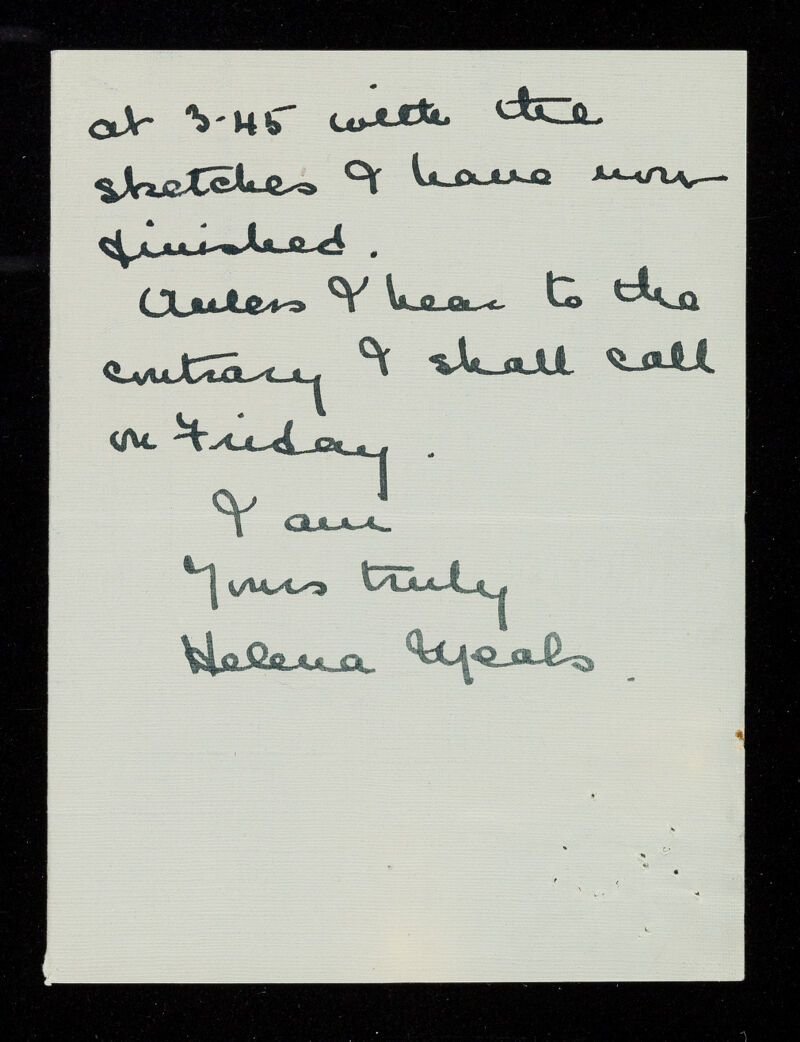 at 3-45 with the
sketches I have now
finished.
Unless I hear to the
contrary I shall call
on Friday.
I am
Yours truly
Helena